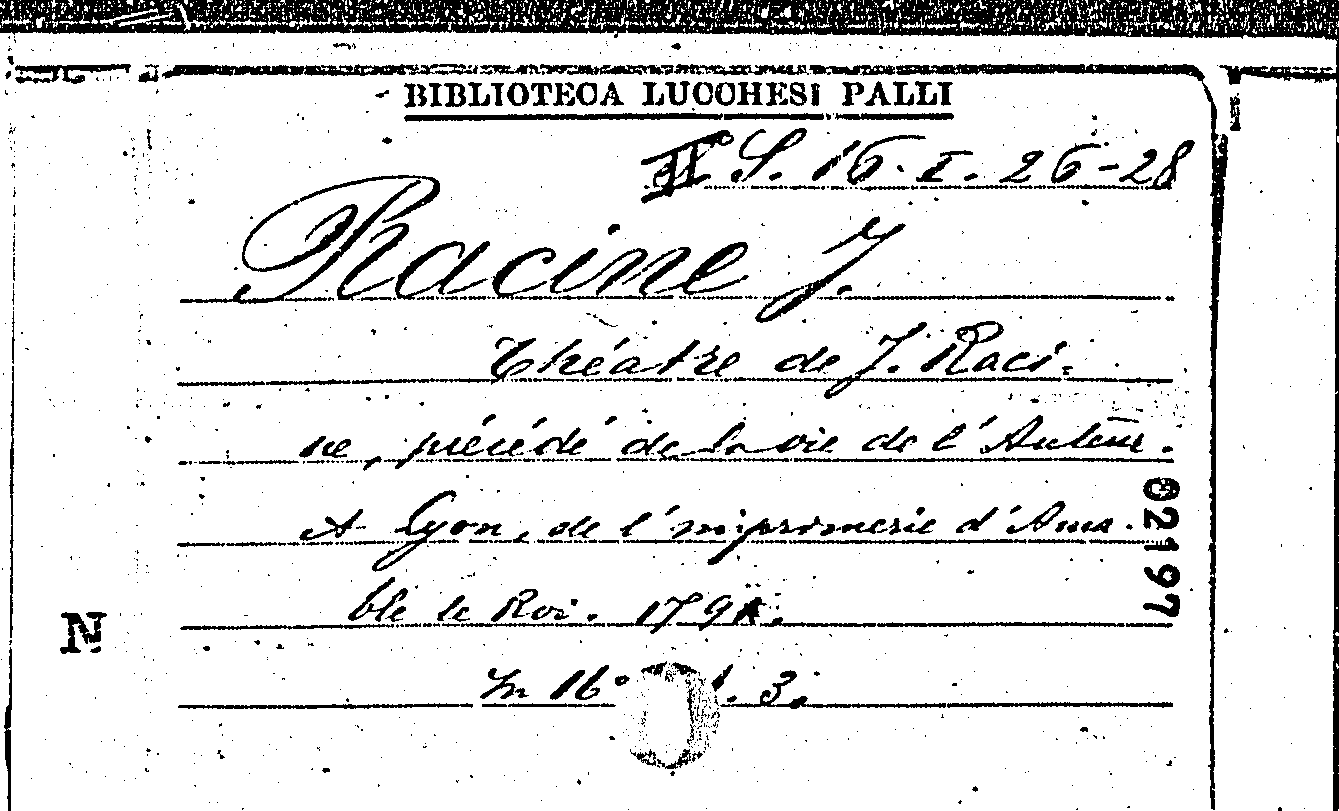 BIBLIOTECA LUCCHESI PALLI
II° S. 16. I. 26-28
Racine J.
Théatre de J. Raci-
ne, précédé de la vie de l'Auteur.
A Lyon, de l'imprimerie d'Ama-
ble le Roi. 179
In 16° 3.
02197
N